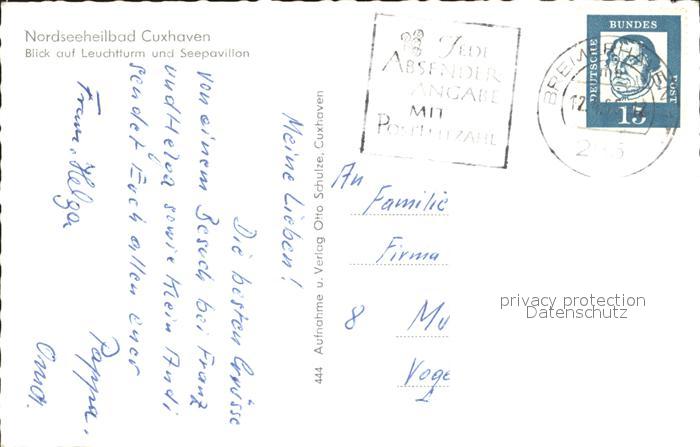 Nordseeheilbad Cuxhaven
Blick auf Leuchtturm und Seepavillon
Meine Lieben!
Die besten Grüsse
von einem Besuch bei Franz
und Helga sowie Klein Andi
sendet Euch allen euer
Pappa.
Franz, Helga
444 Aufnahme u. Verlag Otto Schulze, Cuxhaven
JEDE
ABSENDER
ANGABE
MIT
POSTLEITZAHL
BREMERHAVEN
DEUTSCHE
BUNDES
POST
15
An
Familie
Firma
8 Mü
Voge
privacy protection
Datenschutz